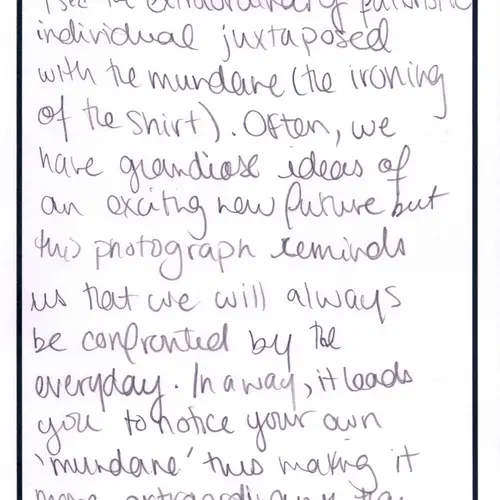 I see the extraordinary futuristic
individual juxtaposed
with the mundane (the ironing
of the shirt). Often, we
have grandiose ideas of
an exciting new future but
this photograph reminds
us that we will always
be confronted by the
everyday. In a way, it leads
you to notice your own
'mundane' thus making it
more extraordinary than